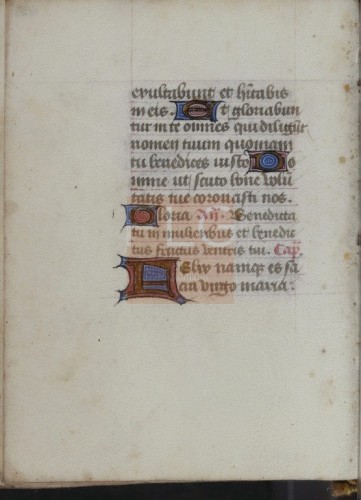 exultabunt et hitabis
in eis. Et gloriabun
tur in te omnes qui diligūt
nomen tuum quoniam
tu benedices iusto Do
mine ut scuto bone volū
tatis tue coronasti nos.
Gloria Añ. Benedicta
tu in mulieribus et benedic
tus fructus ventris tui. Cap.
Felix namq; es sa
cra virgo maria.